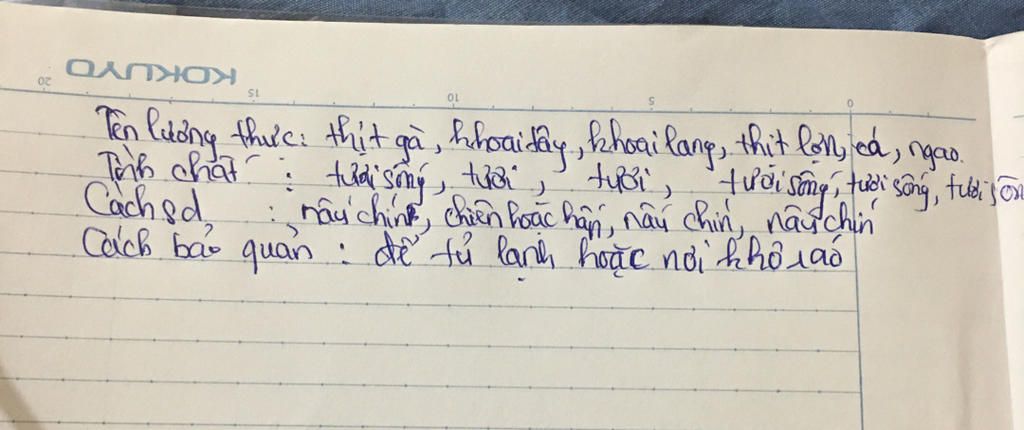 KOKUYO
20 15 10 5 0
Tên lương thực: thịt gà, khoai tây, khoai lang, thịt lợn, cá, ngao.
Tính chất : tươi sống, tươi, tươi, tươi sống, tươi sống, tươi sốn
Cách sd : nấu chín, chiên hoặc hấp, nấu chín, nấu chín
Cách bảo quản : để tủ lạnh hoặc nơi khô ráo